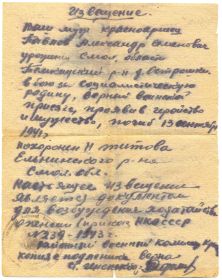 Извещение.
Ваш муж красноармеец
Павлов Александр
уроженец Смол. область
р-н д. Петрошки
в бою за социалистическую
родину, верный воинской
присяге, проявив геройство
и мужество, погиб 13 сентября
1941 г.
похоронен Н Титова
Ельнинского р-на
Смол. обл.
Настоящее извещение
является документом
для возбуждения ходатайства
пенсии (приказ НКО СССР
Районный военный комиссар
копия с подлинника верна